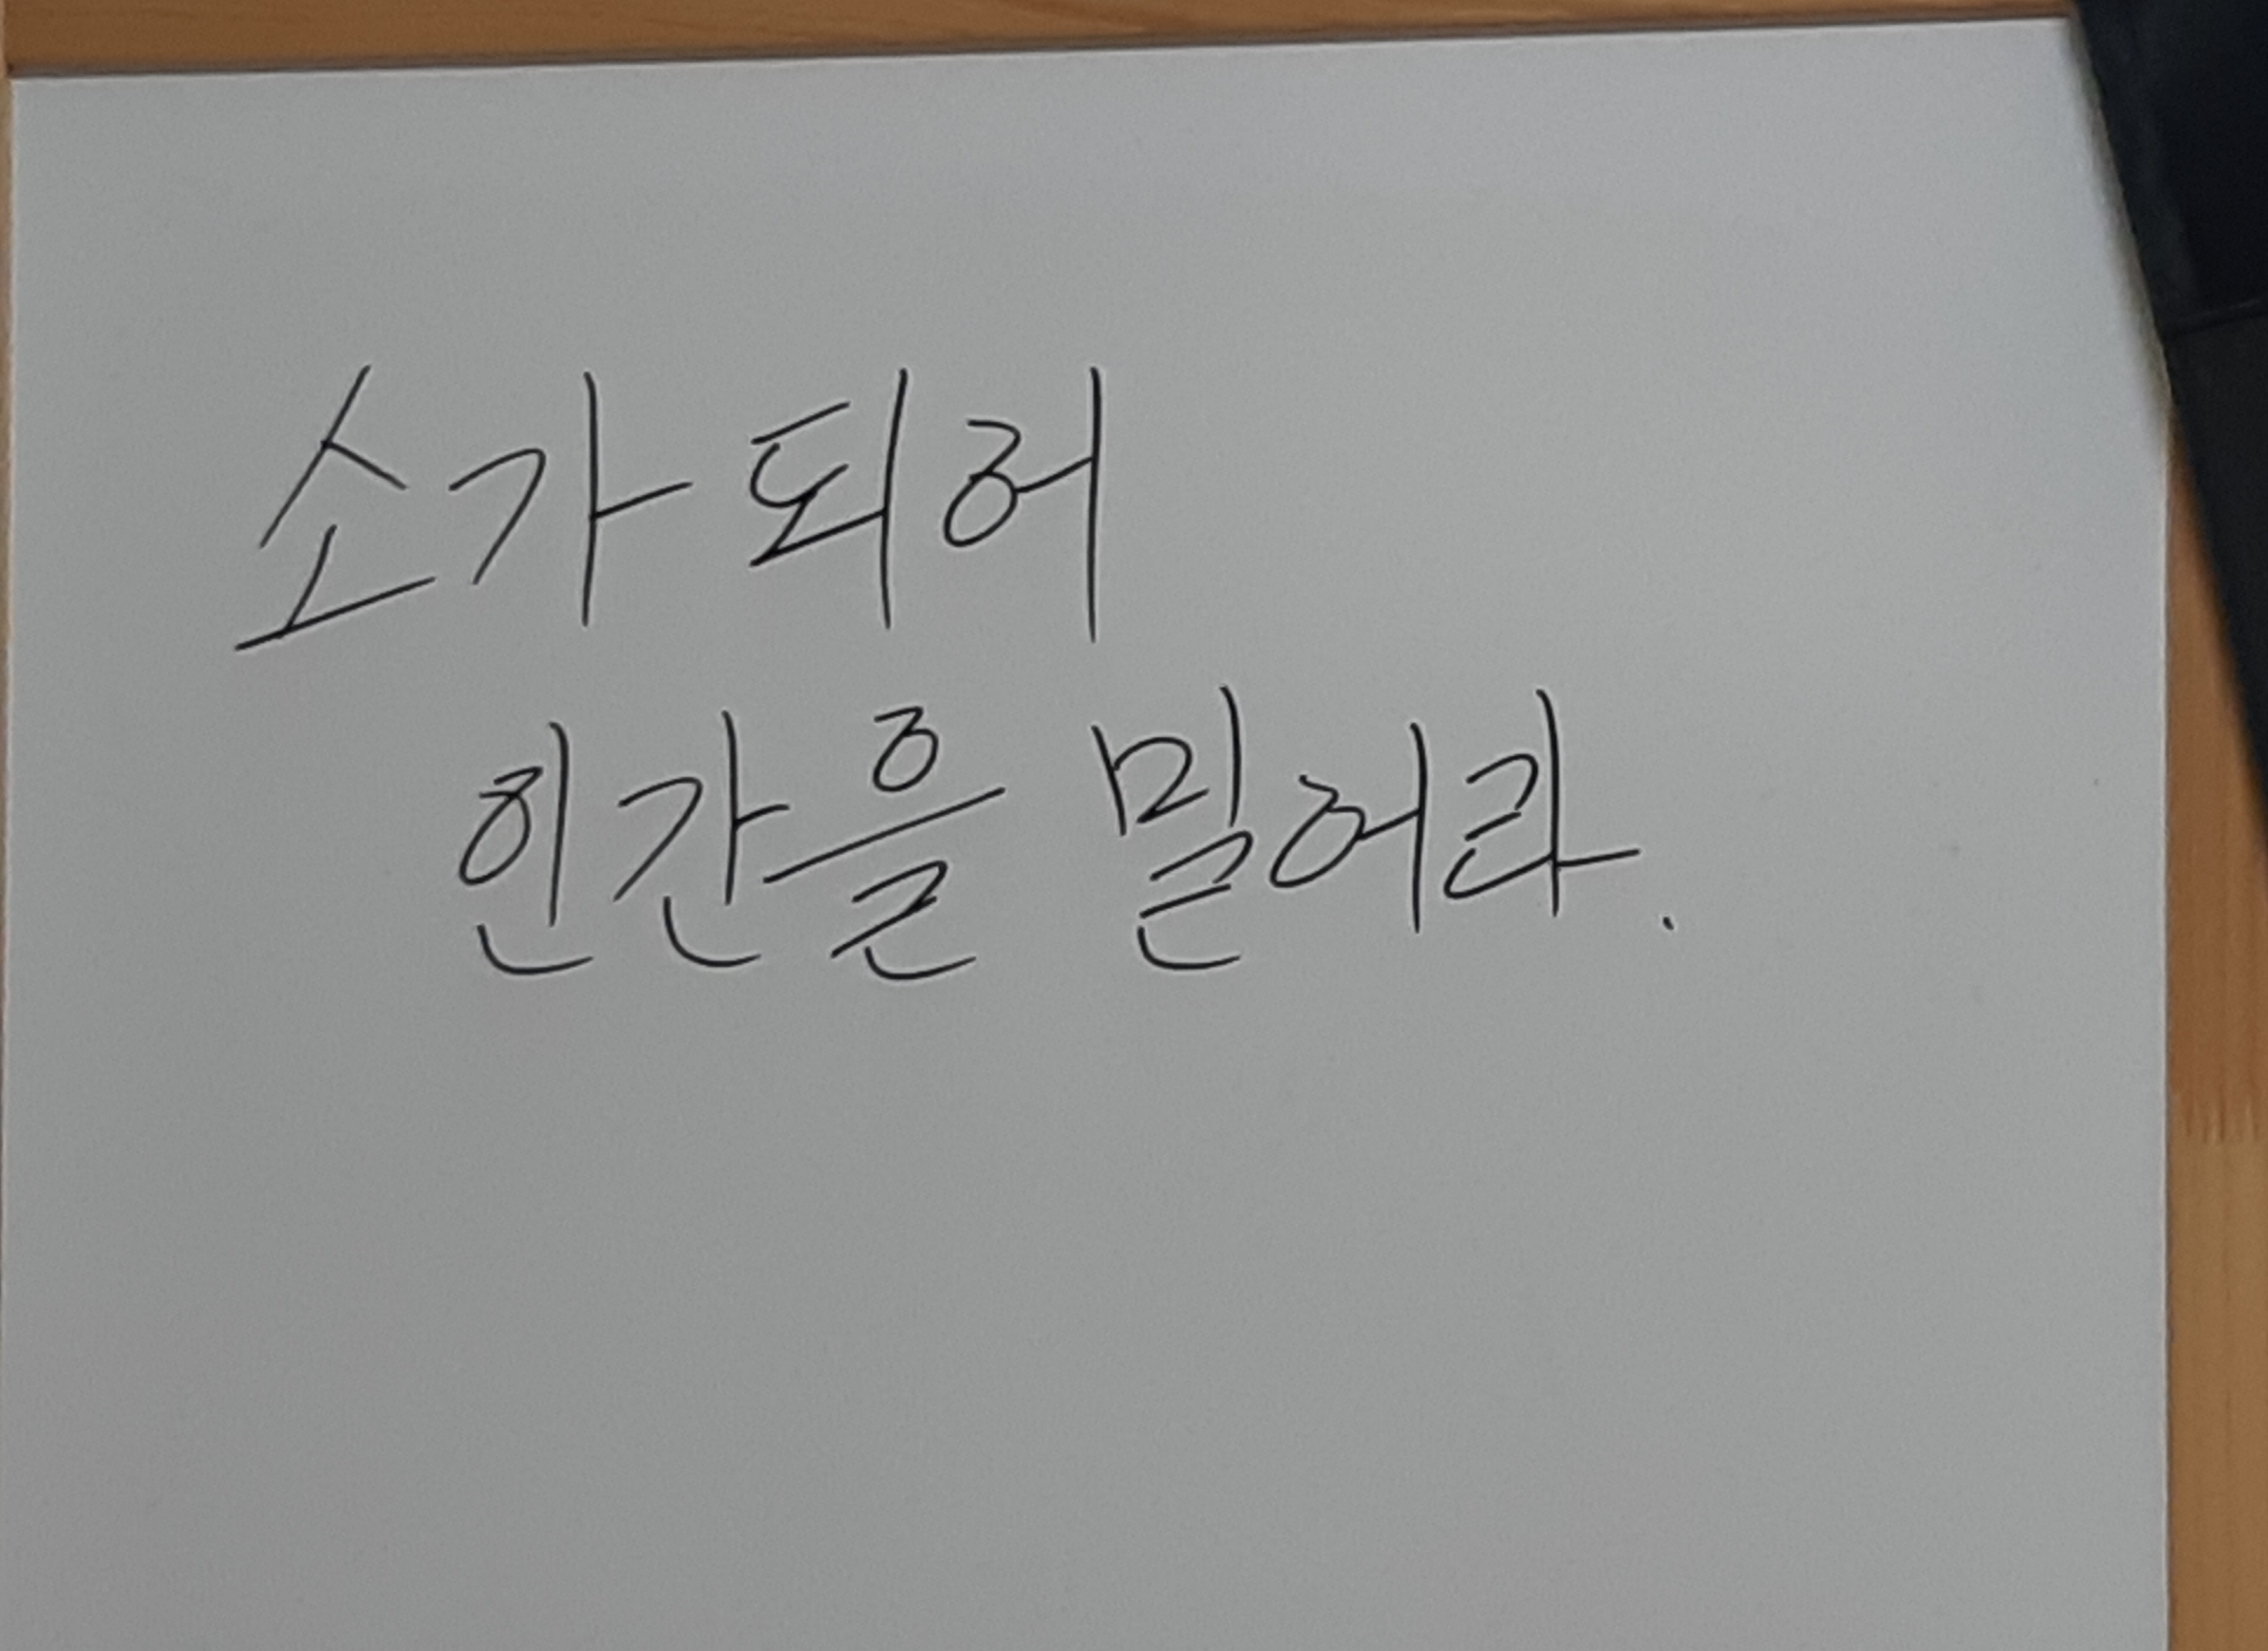 소가 되어
인간을 밀어라.